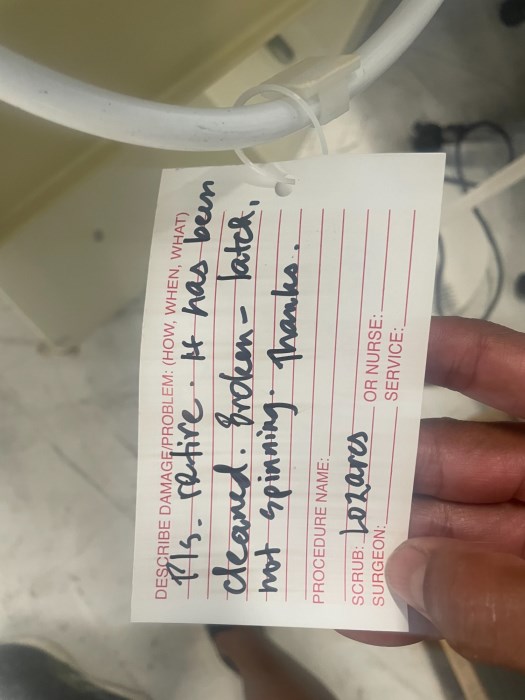 DESCRIBE DAMAGE/PROBLEM: (HOW, WHEN, WHAT)
Pls. retire. It has been
cleaned. Broken - latch,
not spinning. Thanks.
PROCEDURE NAME:
SCRUB: Lozares OR NURSE:
SURGEON: SERVICE: